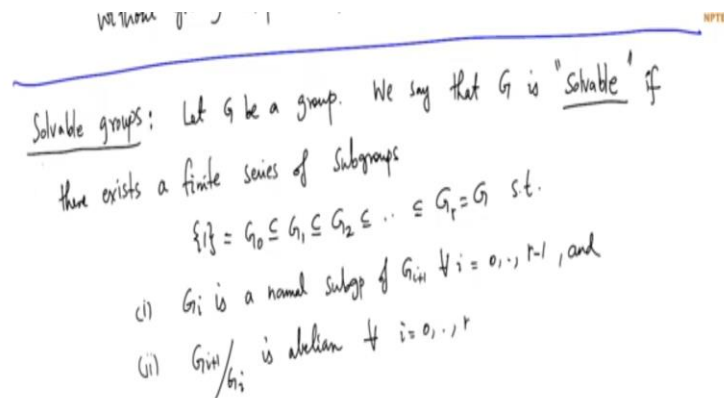 NPTE
without
Solvable groups: Let G be a group. We say that G is "Solvable" if
there exists a finite series of subgroups
{1} = G₀ ⊆ G₁ ⊆ G₂ ⊆ .. ⊆ Gᵣ = G s.t.
(i) Gᵢ is a normal subgp of Gᵢ₊₁ ∀ i = 0,.., r-1, and
(ii) Gᵢ₊₁/Gᵢ is abelian ∀ i = 0,.., r